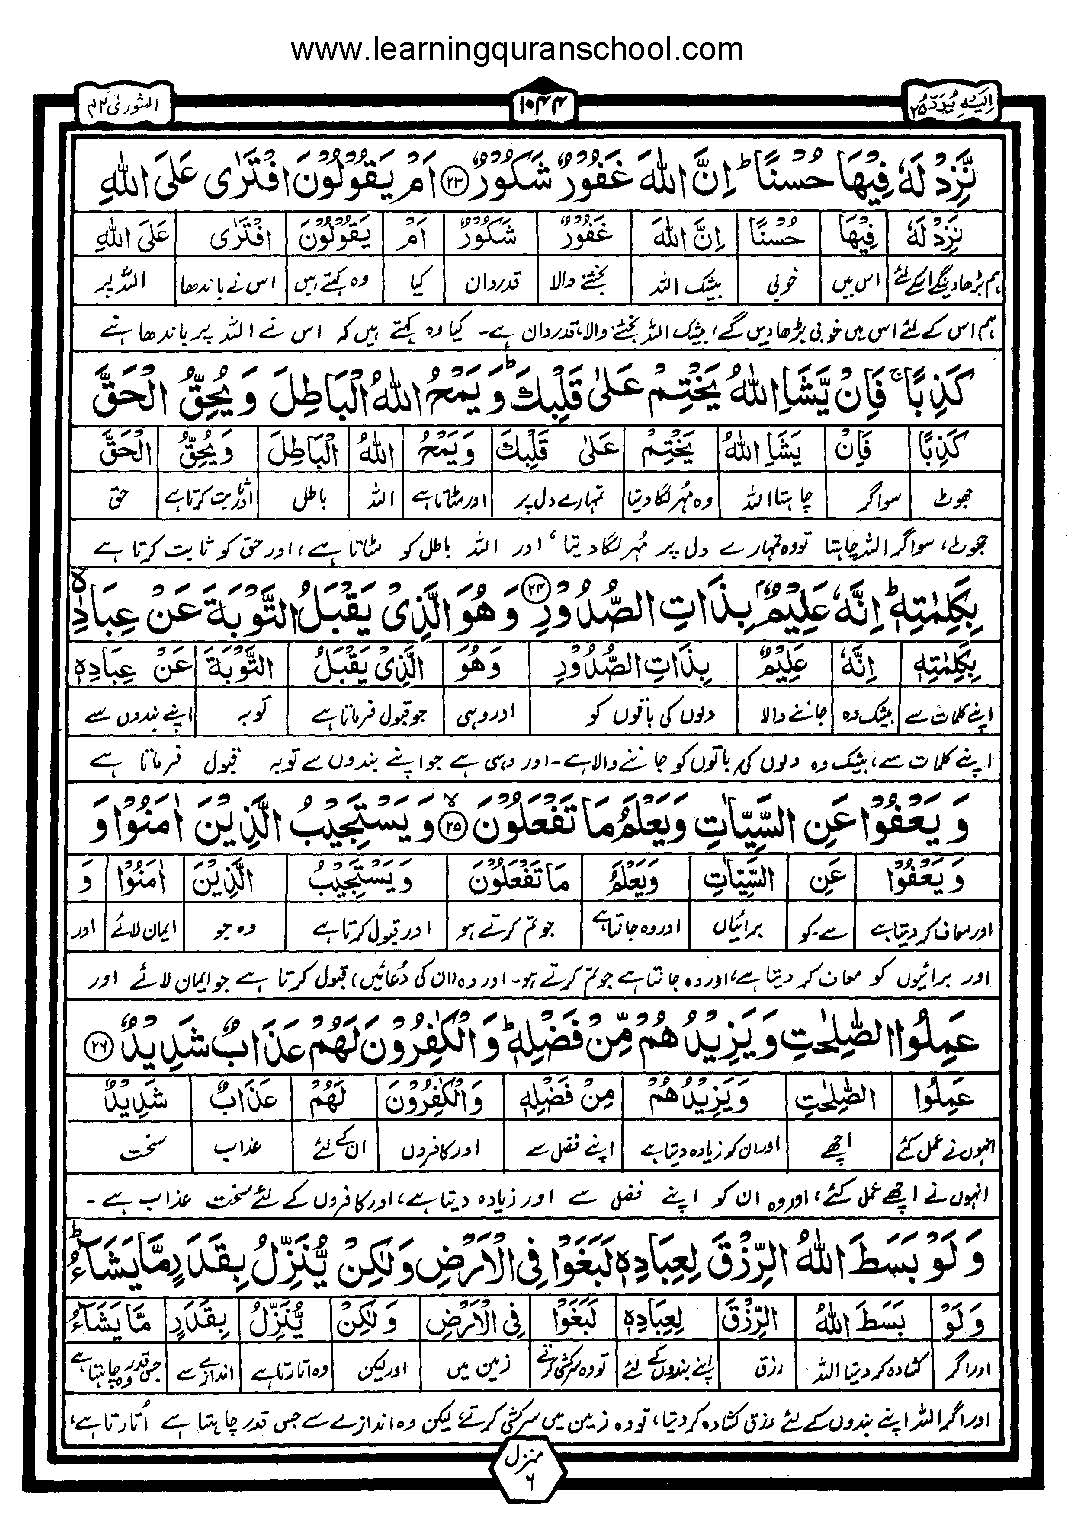 www.learningquranschool.com
الشورىٰ ٤٢
١٠٤٤
اِلَیْهِ یُرَدُّ ٢٥
نَّزِدْ لَهٗ فِیْهَا حُسْنًا ؕ اِنَّ اللّٰهَ غَفُوْرٌ شَكُوْرٌ ٢٣ اَمْ یَقُوْلُوْنَ افْتَرٰى عَلَى اللّٰهِ
نَزِدْ لَهٗ فِیْهَا حُسْنًا اِنَّ اللّٰهَ غَفُوْرٌ شَكُوْرٌ اَمْ یَقُوْلُوْنَ افْتَرٰى عَلَى اللّٰهِ
ہم بڑھا دینگے اسکے لئے اس میں خوبی بیشک اللہ بخشنے والا قدردان کیا وہ کہتے ہیں اس نے باندھا اللہ پر
ہم اس کے لئے اس میں خوبی بڑھا دیں گے، بیشک اللہ بخشنے والا، قدردان ہے۔ کیا وہ کہتے ہیں کہ اس نے اللہ پر باندھا ہے
كَذِبًا ۚ فَاِنْ یَّشَاِ اللّٰهُ یَخْتِمْ عَلٰى قَلْبِكَ ؕ وَ یَمْحُ اللّٰهُ الْبَاطِلَ وَ یُحِقُّ الْحَقَّ
كَذِبًا فَاِنْ یَشَاِ اللّٰهُ یَخْتِمْ عَلٰى قَلْبِكَ وَیَمْحُ اللّٰهُ الْبَاطِلَ وَیُحِقُّ الْحَقَّ
جھوٹ سو اگر چاہتا اللہ وہ مُہر لگا دیتا تمہارے دل پر اور مٹاتا ہے اللہ باطل اور ثابت کرتا ہے حق
جھوٹ، سو اگر اللہ چاہتا تو وہ تمہارے دل پر مُہر لگا دیتا، اور اللہ باطل کو مٹاتا ہے، اور حق کو ثابت کرتا ہے
بِكَلِمٰتِهٖ ؕ اِنَّهٗ عَلِیْمٌۢ بِذَاتِ الصُّدُوْرِ ٢٤ وَ هُوَ الَّذِیْ یَقْبَلُ التَّوْبَةَ عَنْ عِبَادِهٖ
بِكَلِمٰتِهٖ اِنَّهٗ عَلِیْمٌ بِذَاتِ الصُّدُوْرِ وَهُوَ الَّذِیْ یَقْبَلُ التَّوْبَةَ عَنْ عِبَادِهٖ
اپنے کلمات سے بیشک وہ جاننے والا دلوں کی باتوں کو اور وہی جو قبول فرماتا ہے توبہ اپنے بندوں سے
اپنے کلمات سے، بیشک وہ دلوں کی باتوں کو جاننے والا ہے۔ اور وہی ہے جو اپنے بندوں سے توبہ قبول فرماتا ہے
وَ یَعْفُوْا عَنِ السَّیِّاٰتِ وَیَعْلَمُ مَا تَفْعَلُوْنَ ٢٥ وَ یَسْتَجِیْبُ الَّذِیْنَ اٰمَنُوْا وَ
وَ یَعْفُوْا عَنِ السَّیِّاٰتِ وَیَعْلَمُ مَا تَفْعَلُوْنَ وَ یَسْتَجِیْبُ الَّذِیْنَ اٰمَنُوْا وَ
اور معاف کر دیتا ہے سے۔کو برائیاں اور وہ جانتا ہے جو تم کرتے ہو اور قبول کرتا ہے وہ جو ایمان لائے اور
اور برائیوں کو معاف کر دیتا ہے، اور وہ جانتا ہے جو تم کرتے ہو۔ اور وہ (ان کی دُعائیں) قبول کرتا ہے جو ایمان لائے اور
عَمِلُوا الصّٰلِحٰتِ وَ یَزِیْدُهُمْ مِّنْ فَضْلِهٖ ؕ وَ الْكٰفِرُوْنَ لَهُمْ عَذَابٌ شَدِیْدٌ ٢٦
عَمِلُوا الصّٰلِحٰتِ وَیَزِیْدُهُمْ مِنْ فَضْلِهٖ وَالْكٰفِرُوْنَ لَهُمْ عَذَابٌ شَدِیْدٌ
انہوں نے عمل کئے اچھے اور ان کو زیادہ دیتا ہے اپنے فضل سے اور کافروں ان کے لئے عذاب سخت
انہوں نے اچھے عمل کئے، اور وہ ان کو اپنے فضل سے اور زیادہ دیتا ہے، اور کافروں کے لئے سخت عذاب ہے۔
وَ لَوْ بَسَطَ اللّٰهُ الرِّزْقَ لِعِبَادِهٖ لَبَغَوْا فِی الْاَرْضِ وَلٰكِنْ یُّنَزِّلُ بِقَدَرٍ مَّا یَشَآءُ ؕ
وَ لَوْ بَسَطَ اللّٰهُ الرِّزْقَ لِعِبَادِهٖ لَبَغَوْا فِی الْاَرْضِ وَلٰكِنْ یُّنَزِّلُ بِقَدَرٍ مَّا یَشَآءُ
اور اگر کشادہ کر دیتا اللہ رزق اپنے بندوں کے لئے تو وہ سرکشی کرتے زمین میں اور لیکن وہ اتارتا ہے اندازے سے جس قدر وہ چاہتا ہے
اور اگر اللہ اپنے بندوں کے لئے رزق کشادہ کر دیتا، تو وہ زمین میں سرکشی کرتے، لیکن وہ اندازے سے جس قدر چاہتا ہے اُتارتا ہے،
منزل
٦